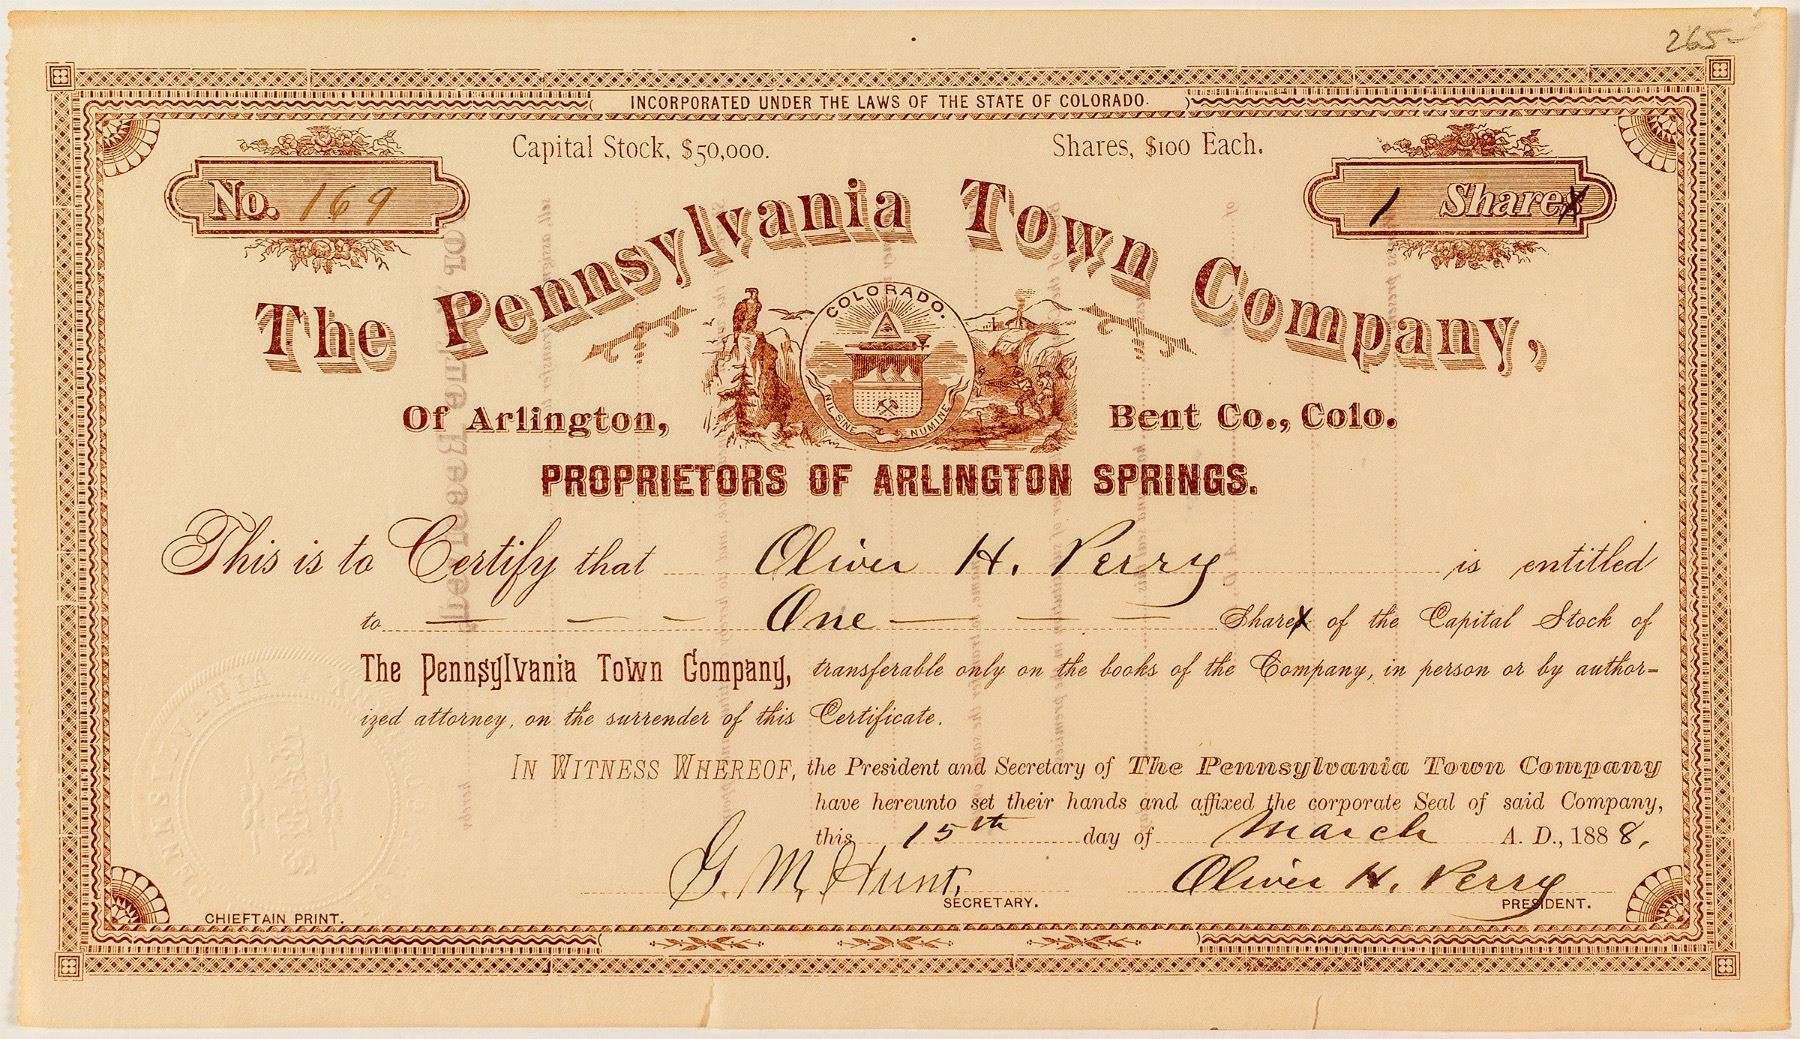 265-
INCORPORATED UNDER THE LAWS OF THE STATE OF COLORADO.
Capital Stock, $50,000.
Shares, $100 Each.
No. 169
1 Share
The Pennsylvania Town Company,
COLORADO.
NIL SINE NUMINE
Of Arlington,
Bent Co., Colo.
PROPRIETORS OF ARLINGTON SPRINGS.
This is to Certify that Oliver H. Perry is entitled
to — — — One — — — Share of the Capital Stock of
The Pennsylvania Town Company, transferable only on the books of the Company, in person or by author-
ized attorney, on the surrender of this Certificate.
IN WITNESS WHEREOF, the President and Secretary of The Pennsylvania Town Company
have hereunto set their hands and affixed the corporate Seal of said Company,
this 15th day of March A. D., 1888,
G. M. Hunt, Oliver H. Perry
SECRETARY. PRESIDENT.
CHIEFTAIN PRINT.